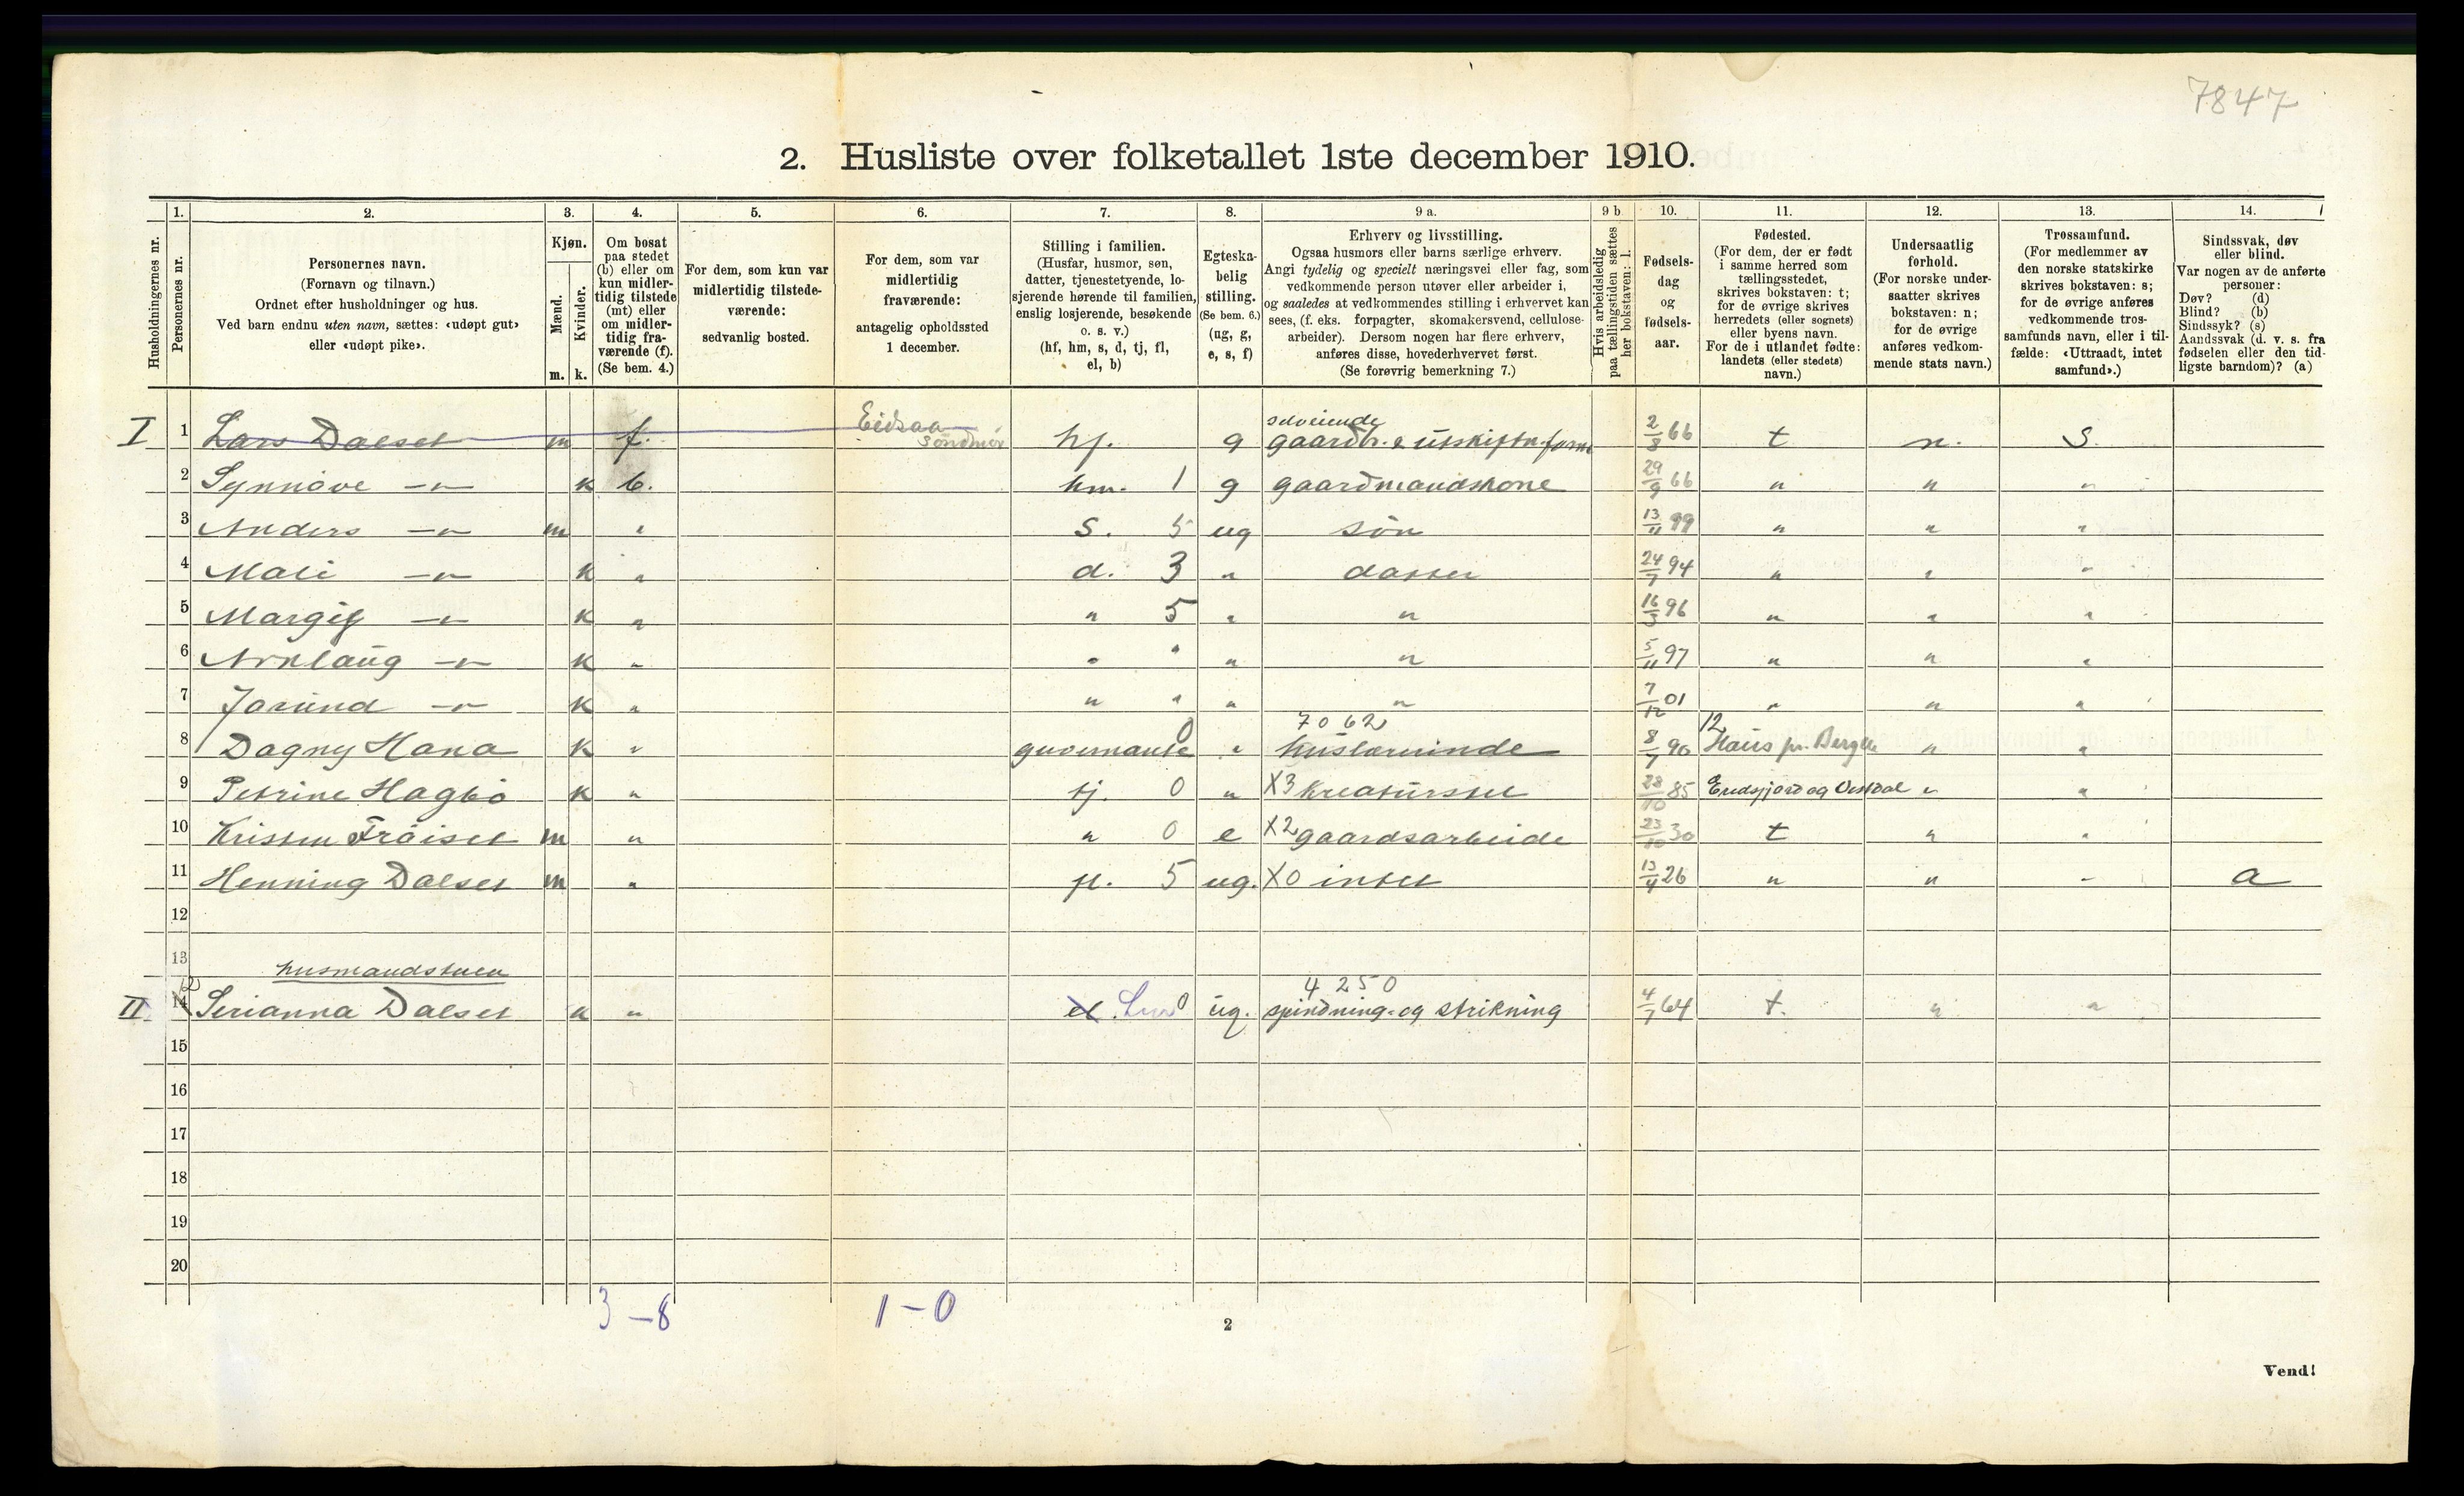 7847
2. Husliste over folketallet 1ste december 1910.
Husholdningernes nr.
1. Personernes nr.
2. Personernes navn.
(Fornavn og tilnavn.)
Ordnet efter husholdninger og hus.
Ved barn endnu uten navn, sættes: «udøpt gut»
eller «udøpt pike».
3. Kjøn.
Mænd. m.
Kvinder. k.
4. Om bosat
paa stedet
(b) eller om
kun midler-
tidig tilstede
(mt) eller
om midler-
tidig fra-
værende (f).
(Se bem. 4.)
5. For dem, som kun var
midlertidig tilstede-
værende:
sedvanlig bosted.
6. For dem, som var
midlertidig
fraværende:
antagelig opholdssted
1 december.
7. Stilling i familien.
(Husfar, husmor, søn,
datter, tjenestetyende, lo-
sjerende hørende til familien,
enslig losjerende, besøkende
o. s. v.)
(hf, hm, s, d, tj, fl,
el, b)
8. Egteska-
belig
stilling.
(Se bem. 6.)
(ug, g,
e, s, f)
9 a. Erhverv og livsstilling.
Ogsaa husmors eller barns særlige erhverv.
Angi tydelig og specielt næringsvei eller fag, som
vedkommende person utøver eller arbeider i,
og saaledes at vedkommendes stilling i erhvervet kan
sees, (f. eks. forpagter, skomakersvend, cellulose-
arbeider). Dersom nogen har flere erhverv,
anføres disse, hovederhvervet først.
(Se forøvrig bemerkning 7.)
9 b. Hvis arbeidsledig
paa tællingstiden sættes
her bokstaven: l.
10. Fødsels-
dag
og
fødsels-
aar.
11. Fødested.
(For dem, der er født
i samme herred som
tællingsstedet,
skrives bokstaven: t;
for de øvrige skrives
herredets (eller sognets)
eller byens navn.
For de i utlandet fødte:
landets (eller stedets)
navn.)
12. Undersaatlig
forhold.
(For norske under-
saatter skrives
bokstaven: n;
for de øvrige
anføres vedkom-
mende stats navn.)
13. Trossamfund.
(For medlemmer av
den norske statskirke
skrives bokstaven: s;
for de øvrige anføres
vedkommende tros-
samfunds navn, eller i til-
fælde: «Uttraadt, intet
samfund».)
14. Sindssvak, døv
eller blind.
Var nogen av de anførte
personer:
Døv? (d)
Blind? (b)
Sindssyk? (s)
Aandssvak (d. v. s. fra
fødselen eller den tid-
ligste barndom)? (a)
I 1 Lars Dalset m f. Eidsaa Söndmör hf. g selveiende gaardbr. & utskiftn.form 2/8 66 t n. S.
2 Synnöve —"— k b. hm. 1 g gaardmandskone 29/9 66 " " "
3 Anders —"— m " S. 5 ug sön 13/11 99 " " "
4 Mali —"— k " d. 3 " datter 24/7 94 " " "
5 Margit —"— k " " 5 " " 16/3 96 " " "
6 Arnlaug —"— k " " " " " 5/11 97 " " "
7 Jorund —"— k " " " " " 7/12 01 " " "
8 Dagny Hana k " guvernante 0 " 7062 huslærerinde 8/7 90 12 Haus pr. Bergen " "
9 Petrine Hagbö k " tj. 0 " X3 kreaturstel 28/10 85 Eredsfjord og Vistdal " "
10 Kristen Fröiset m " " 0 e X2 gaardsarbeide 23/10 30 t " "
11 Henning Dalset m " fl. 5 ug. X0 intet 13/4 26 " " " a
12
13 husmandstuen
II 14 12 Serianna Dalset k " el. 0 ug. 4250 spindning- og strikning 4/7 64 t. " "
15
16
17
18
19
20
3 – 8
1 – 0
2
Vend!